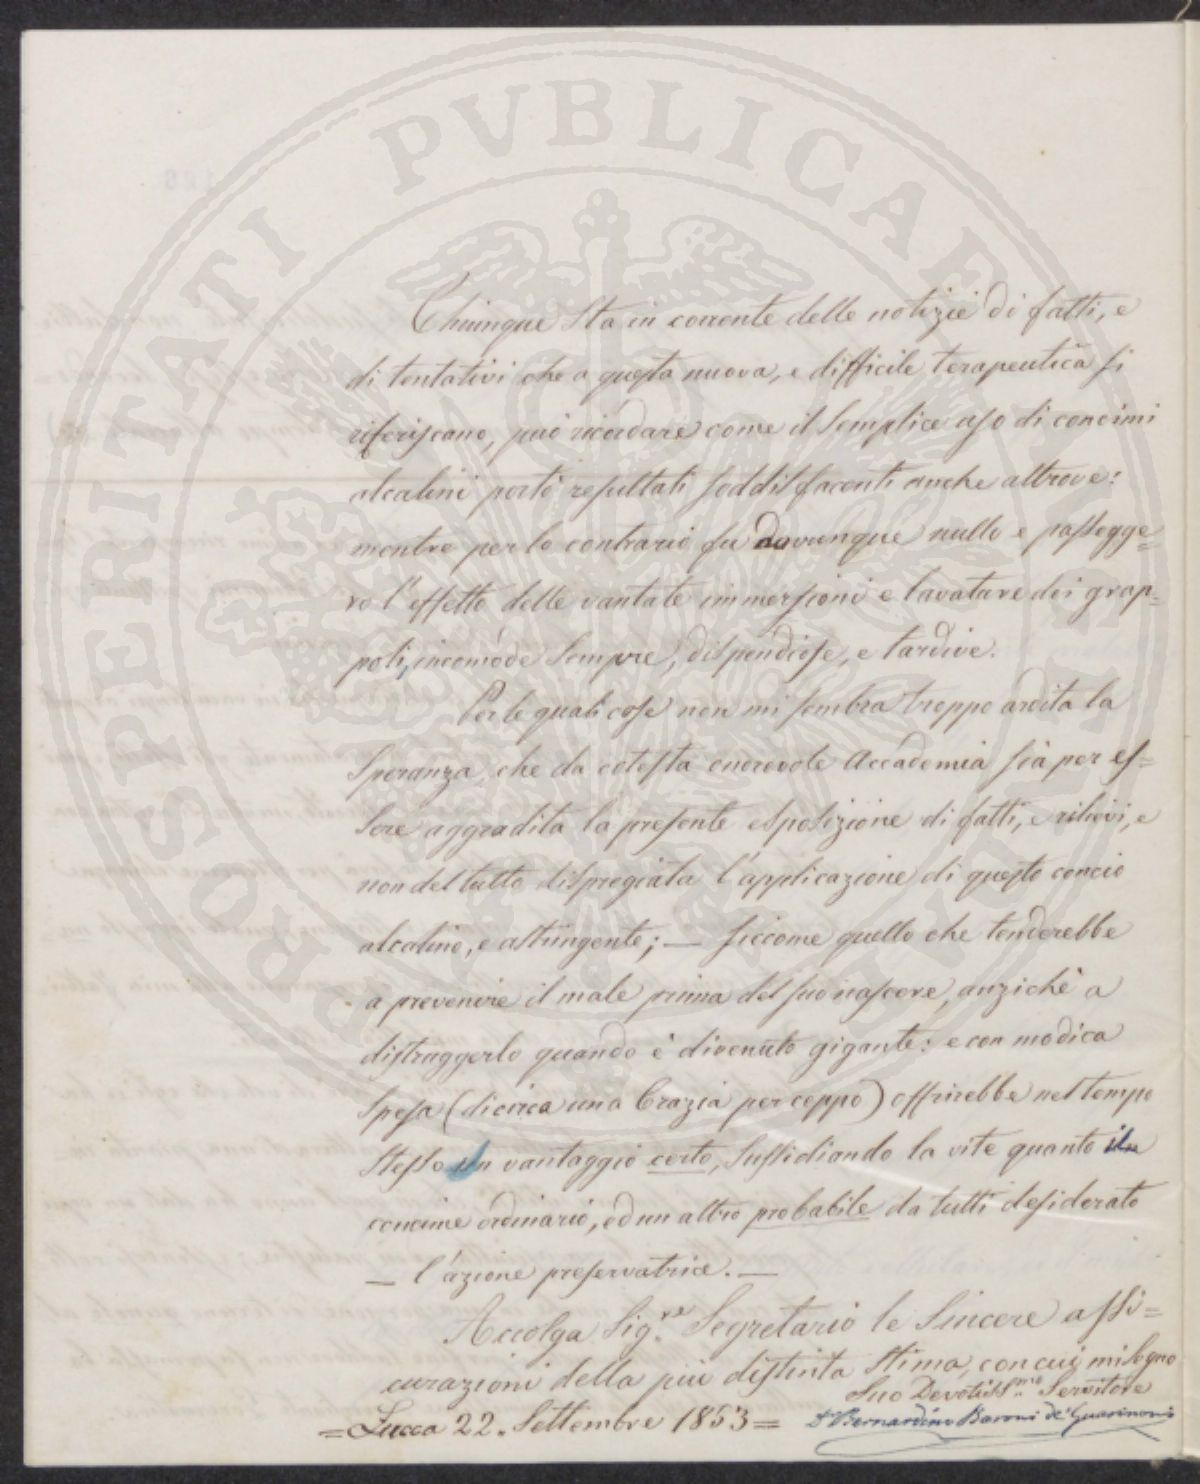 PROSPERITATI PUBLICAE AUGENDAE
Chiunque sta in corrente delle notizie di fatti, e
di tentativi che a questa nuova, e difficile terapeutica si
riferiscano, può ricordare come il semplice uso di concimi
alcalini portò resultati soddisfacenti anche altrove:
mentre per lo contrario fu dovunque nullo e passegge=
ro l'effetto delle vantate immersioni e lavature dei grap=
poli, incomode sempre, dispendiose, e tardive.
Per le quali cose non mi sembra troppo ardita la
speranza, che da cotesta onorevole Accademia sia per es=
sere aggradita la presente esposizione di fatti, e rilievi, e
non del tutto dispregiata l'applicazione di questo concio
alcalino, e astringente; — siccome quello che tenderebbe
a prevenire il male prima del suo nascere, anzichè a
distruggerlo quando è divenuto gigante: e con modica
spesa (di circa una Crazia per ceppo) offrirebbe nel tempo
stesso un vantaggio certo, sussidiando la vite quanto il
concime ordinario, ed un altro probabile da tutti desiderato
— l'azione preservatrice. —
Accolga Sig.re Segretario le sincere assi=
curazioni della più distinta stima, con cui mi segno
Suo Devotiss.mo Servitore
=Lucca 22. Settembre 1853= Dr Bernardino Baroni de' Guarinoni